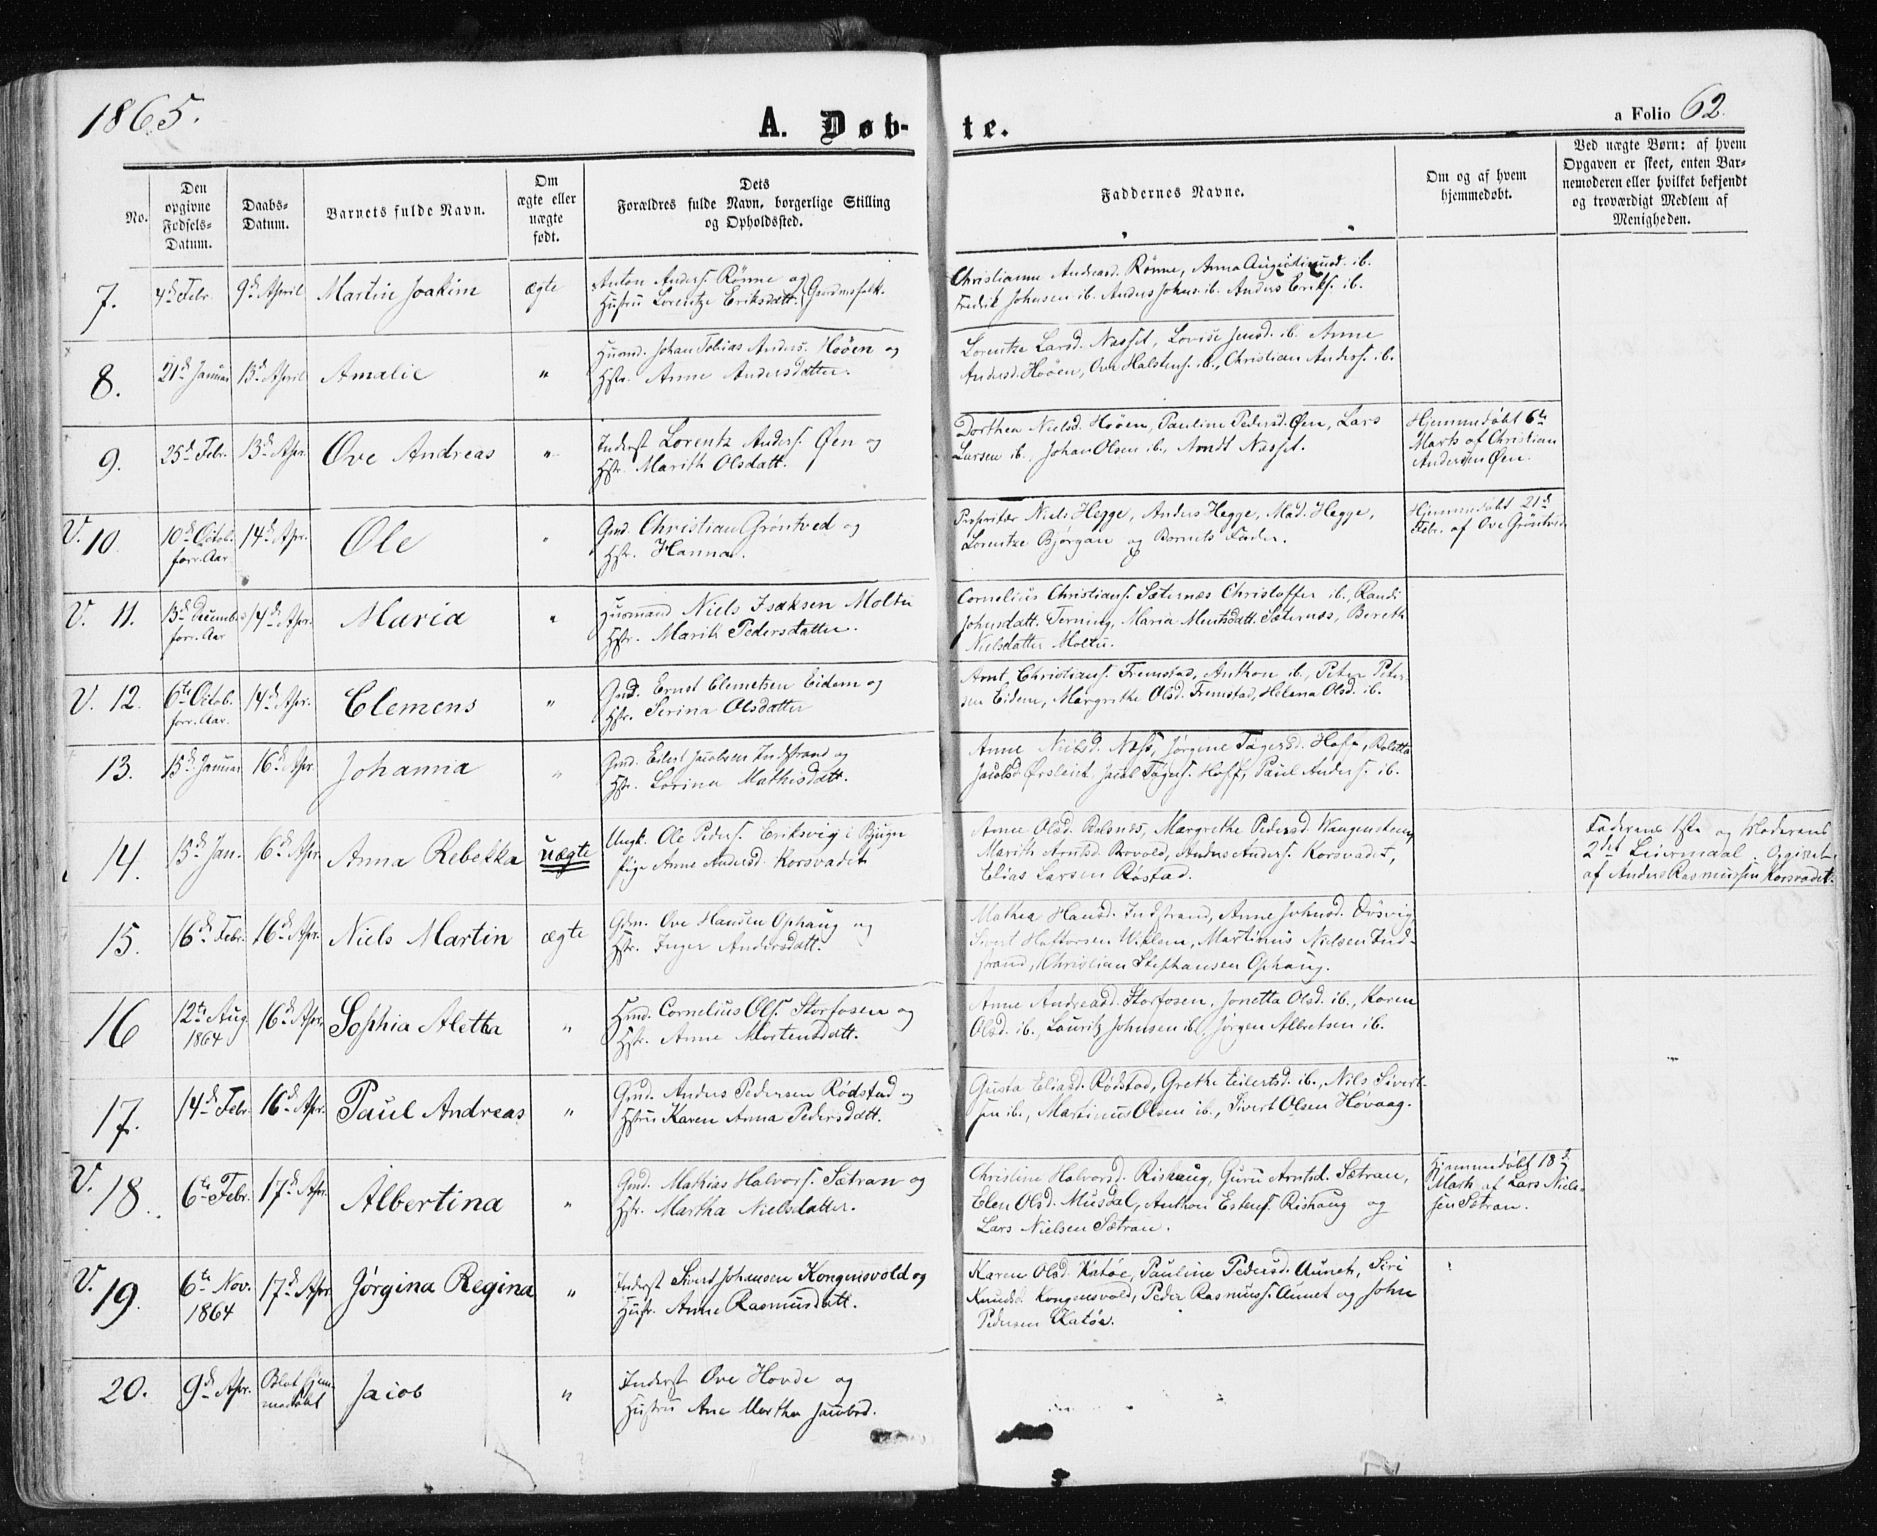 1865.
A. Døb-
te.
a Folio 62.
No.
Den
opgivne
Fødsels-
Datum.
Daabs-
Datum.
Barnets fulde Navn.
Om
ægte eller
uægte
født.
Dets
Forældres fulde Navn, borgerlige Stilling
og Opholdssted.
Faddernes Navne.
Om og af hvem
hjemmedøbt.
Ved uægte Børn: af hvem
Opgaven er skeet, enten Bar-
nemoderen eller hvilket bekjendt
og troværdigt Medlem af
Menigheden.
7.
4de Febr.
9de April
Martin Joakim
ægte
Anton Anders. Rönne og
Hustru Lorentze Eriksdatt. Gaardmfolk.
Christianna Andreasd. Rönne, Anna ib.
Fredrik Johnsen ib. Anders Johns. ib. Anders Eriks. ib.
8.
21de Januar
13de April
Amalie
"
Huusmd. Johan Tobias Anders. Höøen og
Hstr. Anne Andersdatter.
Lorentze Larsd. Nasset, Lovise Jensd. ib. Anne
Andersd. Höøen, Ove Halstens. ib., Christian Anders. ib.
9.
25de Febr.
13de Apr.
Ove Andreas
"
Inderst Lorentz Anders. Øen og
Hstr. Marith Olsdatt.
Dorthea Nielsd. Höøen, Pauline Pedersd. Øen, Lars
Larsen ib., Johan Olsen ib., Arndt Nasset.
Hjemmedøbt 6te
Marts af Christian
Andersen Øen.
V. 10
10de Octob.
forr. Aar
14de Apr.
Ole
"
Gmd Christian Gröntved og
Hstr. Hanna.
Proprietær Niels Hegge, Anders Hegge, Mad. Hegge,
Lorentze Bjørgan og Barnets Fader.
Hjemmedøbt 21de
Febr. af Ove Gröntved
V. 11.
13de December
forr. Aar
14de Apr.
Maria
"
Huusmand Niels Isaksen Moltu
Hstr. Marith Pedersdatter.
Cornelius Christians. Sæternæs Christoffer ib., Randi
Johnsdatt. Terning, Maria Mentsdatt. Sæternæs, Bereth
Nielsdatter Moltu.
V. 12.
6te Octob.
forr. Aar.
14de Apr.
Clemens
"
Gmd. Ernst Clemetsen Eidem og
Hstr. Serina Olsdatter
Arnt Christians. Fremstad, Anthon ib., Peter Peter-
sen Eidem, Margrethe Olsd. Fremstad, Helena Olsd. ib.
13.
15de Januar
16de Apr.
Johanna
"
Gmd. Edest Jacobsen Indstrand og
Hstr. Lorina Mathisdatt.
Anne Nielsd. Næss, Jørgine Tøgersd. Hoff, Boletta
Jacobsd Ørsleiet. Jacob Tøgers. Hoff, Paul Anders. ib.
14.
15de Jan.
16de Apr.
Anna Rebekka
uægte
Ungk. Ole Peders. Eriksvig i Bjugn
Pige Anne Andersd. Korsvadet
Anne Olsd. Balsnæs, Margrethe Pedersd. Wangensteen,
Marith Arntsd. Borvold, Anders Anders. Korsvadet,
Elias Larsen Röstad.
Faderens 1ste og Moderens
2det Leiermaal. Opgivet
af Anders Rasmussen Korsvadet.
15.
16de Febr.
16de Apr.
Niels Martin
ægte
Gdm. Ove Hansen Ophaug og
Hstr. Inger Andersdatt.
Mathea Hansd. Indstrand, Anne Johnsd. Døsvig
Sivert Haftorsen Wiklem, Martinus Nielsen Ind-
strand, Christian Stephansen Ophaug.
16
12te Aug.
1864
16de Apr.
Sophia Aletha
"
Hmd. Cornelius Ols. Storfosen og
Hstr. Anne Mortensdatt.
Anne Andreasd. Storfosen, Jonetta Olsd. ib., Karen
Olsd. ib., Lauritz Johnsen ib. Jørgen Albretsen ib.
17.
14de Febr.
16de Apr.
Paul Andreas
"
Gmd. Anders Pedersen Rödstad og
Hstru Karen Anna Pedersdatt.
Gusta Eliasd. Rödstad, Grethe Eilertsd. ib., Nils Sivert-
sen ib., Martinus Olsen ib., Sivert Olsen Høvaag.
V. 18.
6te Febr.
17de Apr.
Albertina
"
Gmd. Mathias Halvors. Sætran og
Hstr. Martha Nielsdatter.
Christine Halvorsd. Rishaug, Guru Arntsd. Sætran,
Elen Olsd. Musdal, Anthon Estens. Rishaug og
Lars Nielsen Sætran.
Hjemmedöbt 18de
Marts af Lars Niel-
sen Sætran.
V. 19.
6te Nov.
1864
17de Apr.
Jørgina Regina
"
Inderst Sivert Johansen Kongensvold og
Hustr. Anne Rasmusdatt.
Karen Olsd. Katöe, Pauline Pedersd. Aunet, Siri
Knudsd. Kongensvold, Peder Rasmuss. Aunet og John
Pedersen Katöe.
20.
9de Apr.
Blot Hjem-
medøbt
Jacob
"
Inderst Ove Hovde og
Hustru Ane Martha Jacobsd.